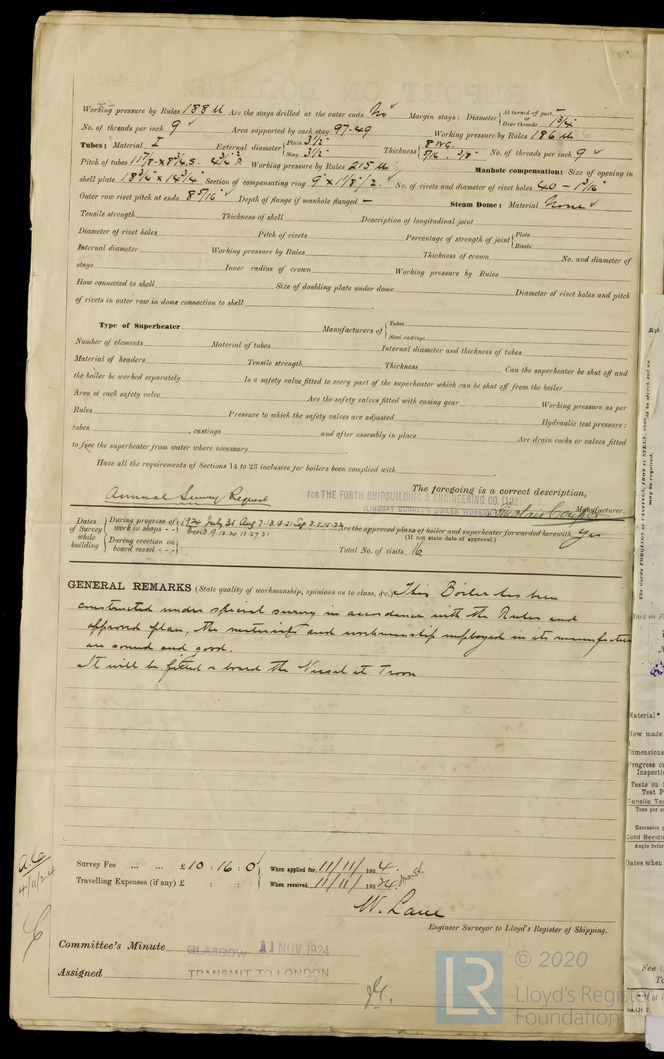 Working pressure by Rules 188 lb Are the stays drilled at the outer ends No Margin stays: Diameter { At turned off part, — or Over threads 1 3/4"
No. of threads per inch 9 Area supported by each stay 97.49 Working pressure by Rules 186 lb
Tubes: Material I External diameter { Plain 3 1/2 Stay 3 1/2 Thickness { 8 WG. 5/16 3/8" No. of threads per inch 9
Pitch of tubes Working pressure by Rules 215 lb Manhole compensation: Size of opening in
shell plate 18 3/4" x 14 3/4" Section of compensating ring No. of rivets and diameter of rivet holes 40 – 1 3/16"
Outer row rivet pitch at ends 8 5/16" Depth of flange if manhole flanged — Steam Dome: Material None
Tensile strength Thickness of shell Description of longitudinal joint
Diameter of rivet holes Pitch of rivets Percentage of strength of joint { Plate Rivets
Internal diameter Working pressure by Rules Thickness of crown No. and diameter of
stays Inner radius of crown Working pressure by Rules
How connected to shell Size of doubling plate under dome Diameter of rivet holes and pitch
of rivets in outer row in dome connection to shell
Type of Superheater Manufacturers of { Tubes Steel castings
Number of elements Material of tubes Internal diameter and thickness of tubes
Material of headers Tensile strength Thickness Can the superheater be shut off and
the boiler be worked separately Is a safety valve fitted to every part of the superheater which can be shut off from the boiler
Area of each safety valve Are the safety valves fitted with easing gear Working pressure as per
Rules Pressure to which the safety valves are adjusted Hydraulic test pressure:
tubes , castings and after assembly in place Are drain cocks or valves fitted
to free the superheater from water where necessary
Have all the requirements of Sections 14 to 23 inclusive for boilers been complied with
The foregoing is a correct description,
Annual Survey Request FOR THE FORTH SHIPBUILDING & ENGINEERING CO. Manufacturer.
(LINDSAY BURNET'S BOILER WORKS)
Dates of Survey while building { During progress of work in shops - - 1924 July 31 Aug 7. 13. Sep Are the approved plans of boiler and superheater forwarded herewith Yes
During erection on board vessel - - - (If not state date of approval.)
Total No. of visits 16
GENERAL REMARKS (State quality of workmanship, opinions as to class, &c.) This Boiler has been
constructed under special survey in accordance with the Rules and
approved plan, the materials and workmanship employed in its manufacture
are sound and good.
It will be fitted on board the Vessel at Troon
4/11/24
Survey Fee ... ... £ 10 : 16 : 0 When applied for, 11/11/1924.
Travelling Expenses (if any) £ : : When received, 11/11/1924
W. Lane
Engineer Surveyor to Lloyd's Register of Shipping.
Committee's Minute GLASGOW 11 NOV 1924
Assigned TRANSMIT TO LONDON
LR © 2020
Lloyd's Register
Foundation